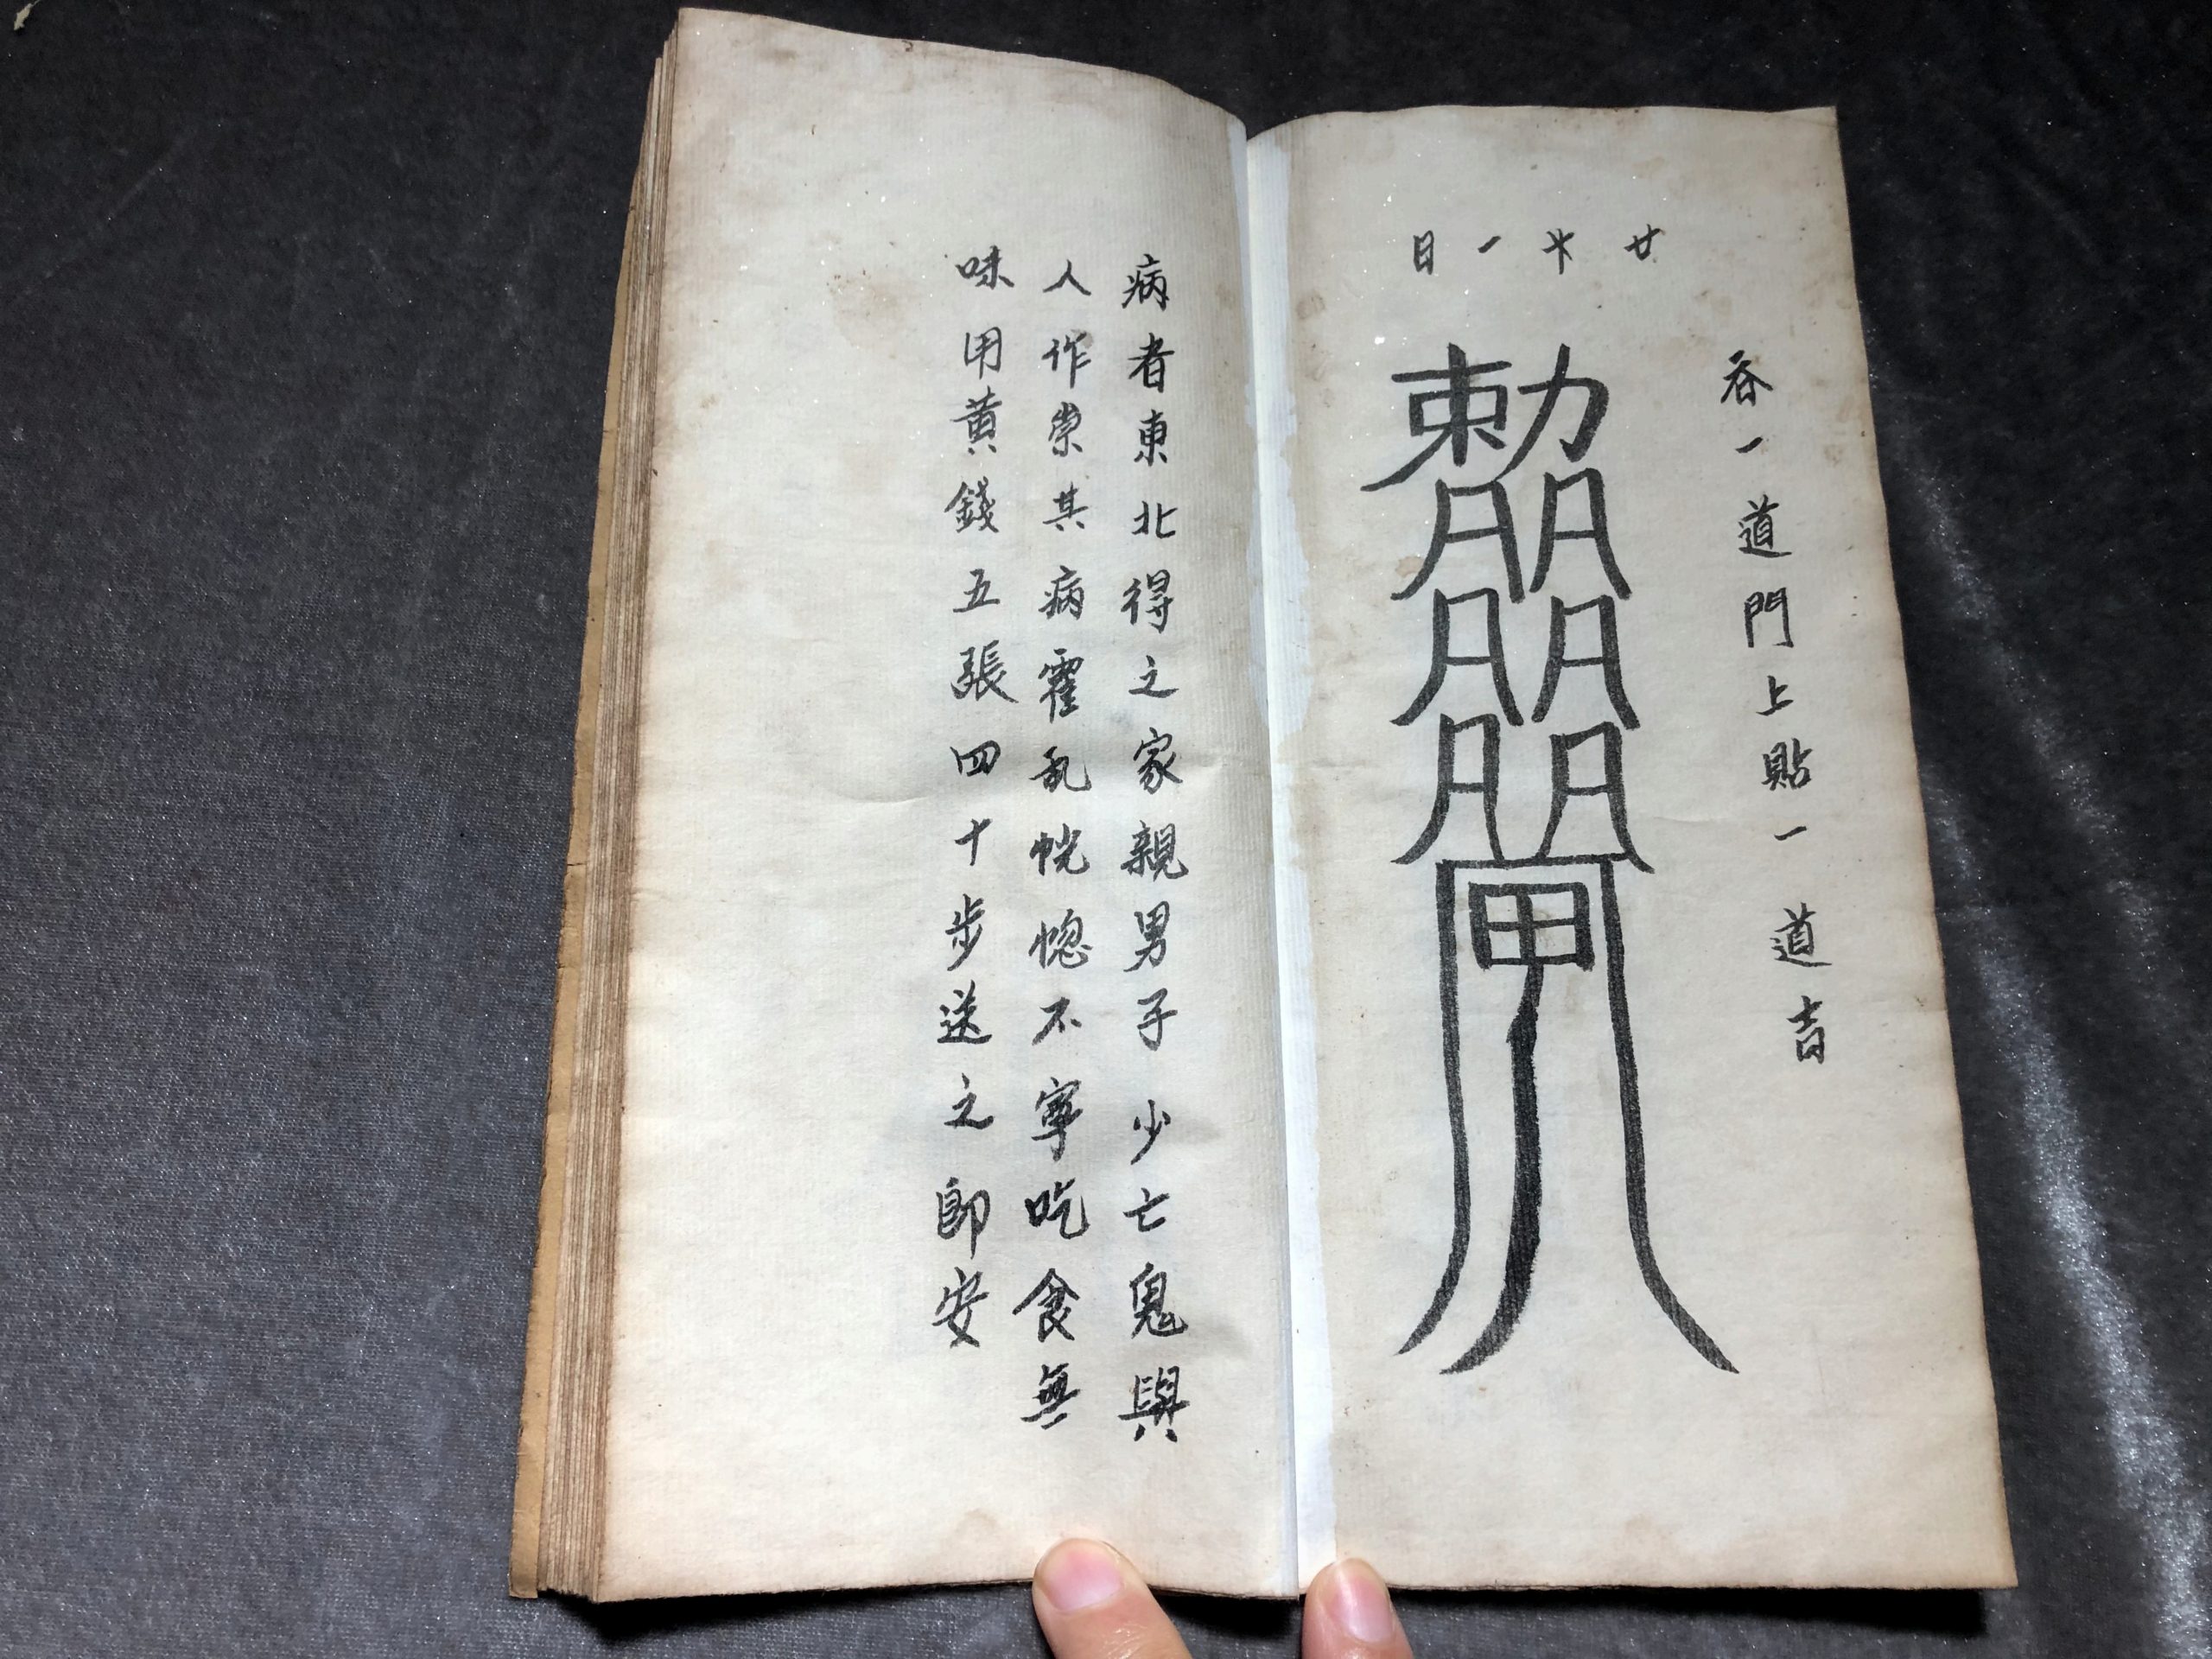 吞一道門上貼一道吉
廿一日
勅
病者東北得之家親男子少亡鬼與
人作祟其病霍乱恍惚不寧吃食無
味用黄錢五張四十步送之即安